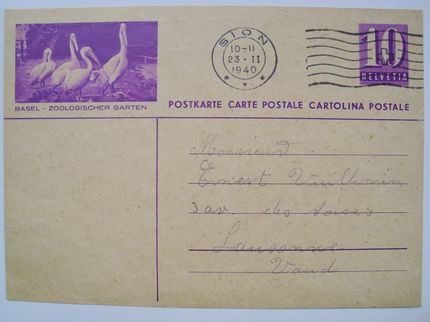 SION
10-II
23·II
1940
10
HELVETIA
BASEL - ZOOLOGISCHER GARTEN
POSTKARTE CARTE POSTALE CARTOLINA POSTALE
Monsieur
Ernest Vuilliemin
3 av. des
Lausanne
Vaud